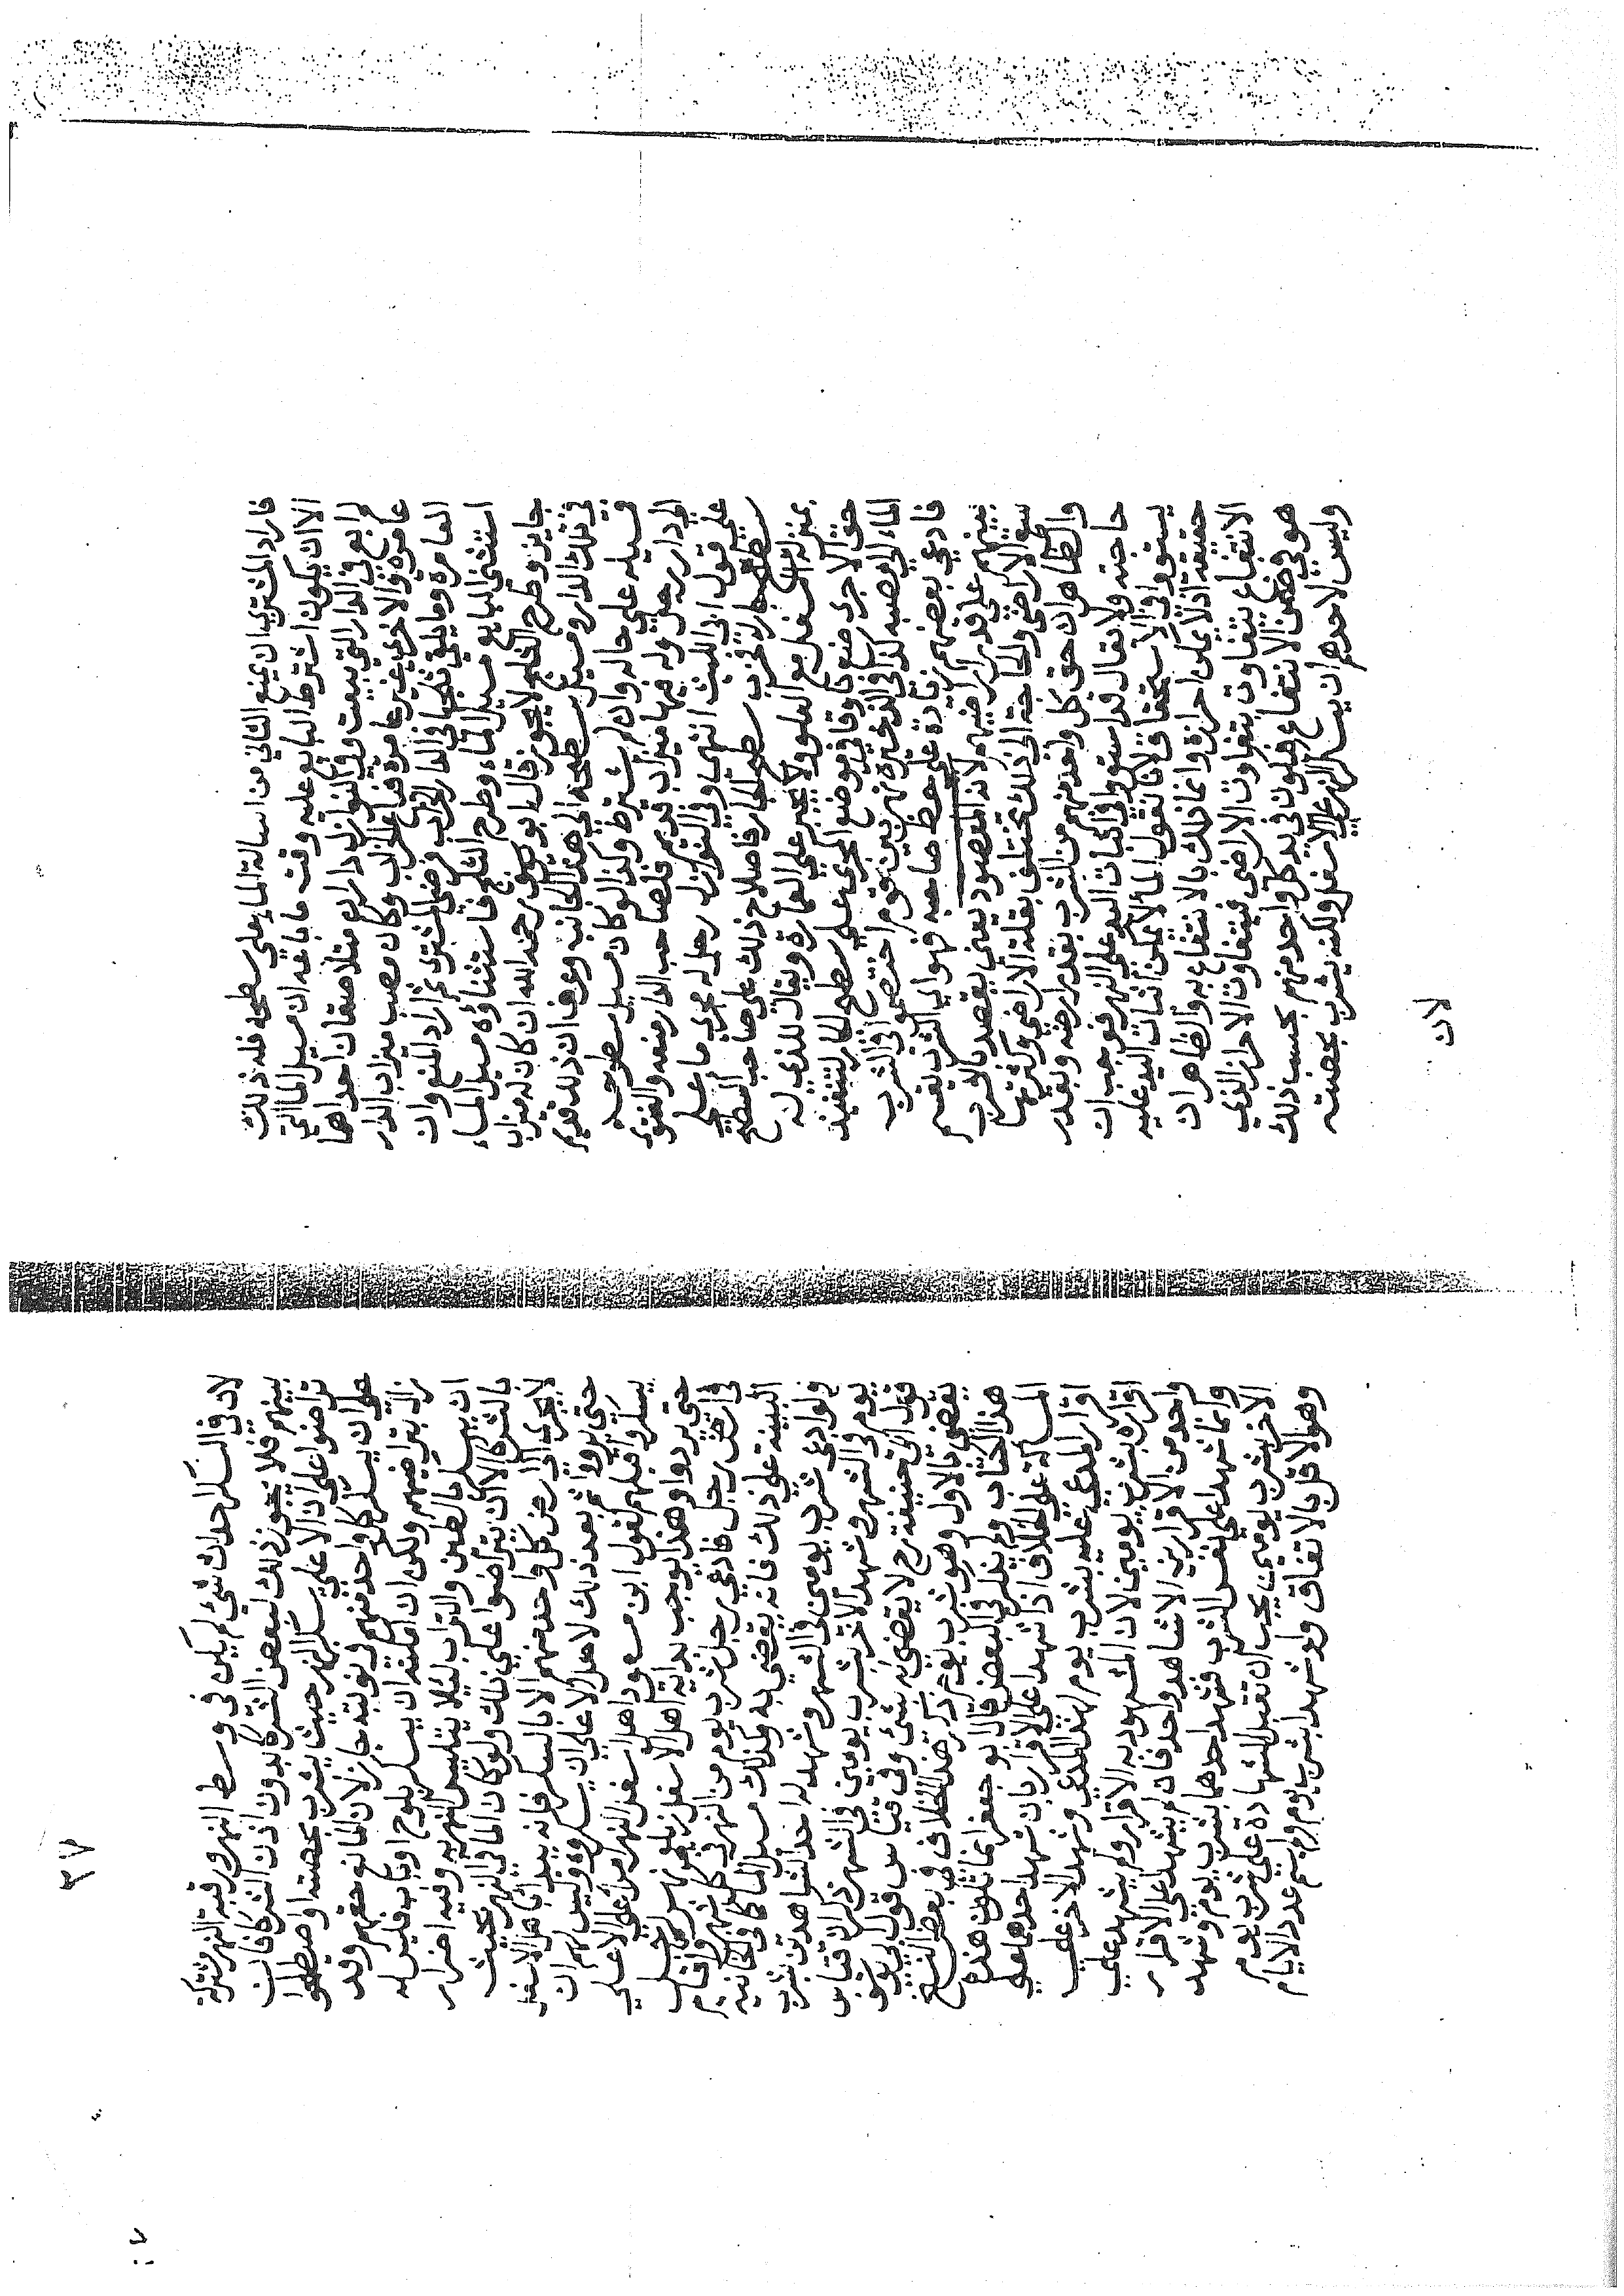 فاراد المشتري ان يمنع الثاني من اسالة الماء على سطحه فله ذلك
الا ان يكون اشترط البايع عليه وقت ما باعه ان مسيل الماء الذي
لم ابع في الدار التي بيعت وفي النوازل داران متلاصقتان احداهما
عامرة والاخرى غير عامرة فباع الخراب وكان مصب ميزاب الدار
العامرة وما يلقى ثلجها في الدار الخراب فرضي المشتري ثم اراد المنع وان
استثنى البايع مسيل الماء وطرح الثلج فاستثناؤه مسيل الماء
جايز وطرح الثلج لا يجوز قال ابو يوسف رحمه الله ان كان له ميزاب
في تلك الدار ومسيل سطحه الى هذا الجانب وعرف ان ذلك قديم
فمسيله على حاله وان لم يشترط وكذا لو كان مسيل سطوحه
الى دار رجل وله فيها ميزاب قديم فلصاحب الدار منعه والفتوى
على قول ابي الليث انتهى وفي النوازل رجل له مجرى ماء على
سطح جاره فخرب سطح الجار فاصلاح ذلك على صاحب السطح
بمنزلة السفل مع العلو ولا يجبر على العمارة ويقال للذي له
حق الاجرى ضع ناوقا في موضع المجرى على سطح الجار لتنفيذ
الماء الى مصبه كذا في الذخيرة نهر بين قوم اختصموا في الشرب
فادعى بعضهم زيادة على حظ صاحبه فهو اي الشرب يقسم
بينهم على قدر اراضيهم لان المقصود يعني يقصد بالشرب
سقي الاراضي والحاجة الى ذلك تختلف بقلة الاراضي وكثرتها
والظاهر ان حق كل واحد منهم من الشرب بقدر ارضه وبقدر
حاجته ولا يقال قد استووا في اثبات اليد على النهر فوجب ان
يستووا في الاستحقاق لانا نقول الماء لا يمكن اثبات اليد عليه
حقيقة اذ لا يمكن احرازه وانما ذلك بالانتفاع به والظاهر ان
الانتفاع يتفاوت بتفاوت الاراضي فيتفاوت الاحراز الذي
هو في ضمن الانتفاع فيكون في يد كل واحد منهم بحسب ذلك
وليس لاحدهم ان يسكر النهر على الاسفل ولكنه يشرب بحصته
لان
لان في السكر احداث شيء لم يكن في وسط النهر ورقبة النهر مشتركة
بينهم فلا يجوز ذلك لبعض الشركا بدون اذن الشركا فان
تراضوا على ان الاعلى يسكر النهر حيث يشرب بحصته او اصطلحوا
على ان يسكر كل واحد منهم في نوبته جاز لان المانع حقهم وقد
زال بتراضيهم ولكن ان امكنه ان يسكر بلوح او باب فليس له
ان يسكر بالطين والتراب لئلا يتلبس النهر به وفيه اضرار
بالشركا الا ان يتراضوا على ذلك ولو كان الماء في النهر بحيث
لا يجري الى ارض كل واحد منهم الا بالسكر فانه يبدا باهل الاسفل
حتى يرووا ثم بعد ذلك لاهل الاعلى ان يسكروه وليس لهم ان
يسكروا قبلهم لقول ابن مسعود اهل اسفل النهر امراء على الاعلى
حتى يرووا وهذا يوجب بداية اهل الاسفل
في ارض رجل فادعى رجل شرب يوم من النهر في كل شهر واقام
البينة على ذلك فانه يقضي به وكذلك مسيل الماء كما في الخانية
ولو ادعى شرب يومين في الشهر وشهد له احد الشاهدين بشرب
يوم في الشهر وشهد الاخر بشرب يومين في الشهر ذكر ان قياس
قول ابي حنيفة رح لا يقضي له بشيء وفي قياس قول ابي يوسف
يقضي بالاول وهو شرب يوم ذكر هذا الخلاف في بعض النسخ
هذا الكتاب ولم يذكر في البعض قال ابو جعفر انما تكون هذه
المسالة على الخلاف اذا شهدا على الاقرار بان شهد احدهما على
اقرار المدعى عليه بشرب يوم لهذا المدعي وشهد الاخر على
اقراره بشرب يومين لان المشهود به الاقرار ولم يشهد على
واحد من الاقرارين الا شاهد واحد فان لم يشهدا على الاقرار
وانما شهدا على نفس الشرب فشهد احدهما بشرب يوم وشهد
الاخر بشرب يومين يجب ان تقبل الشهادة على شرب يوم
وهو الاقل بالاتفاق ولو شهدا بشرب يوم ولم يسم عدد الايام